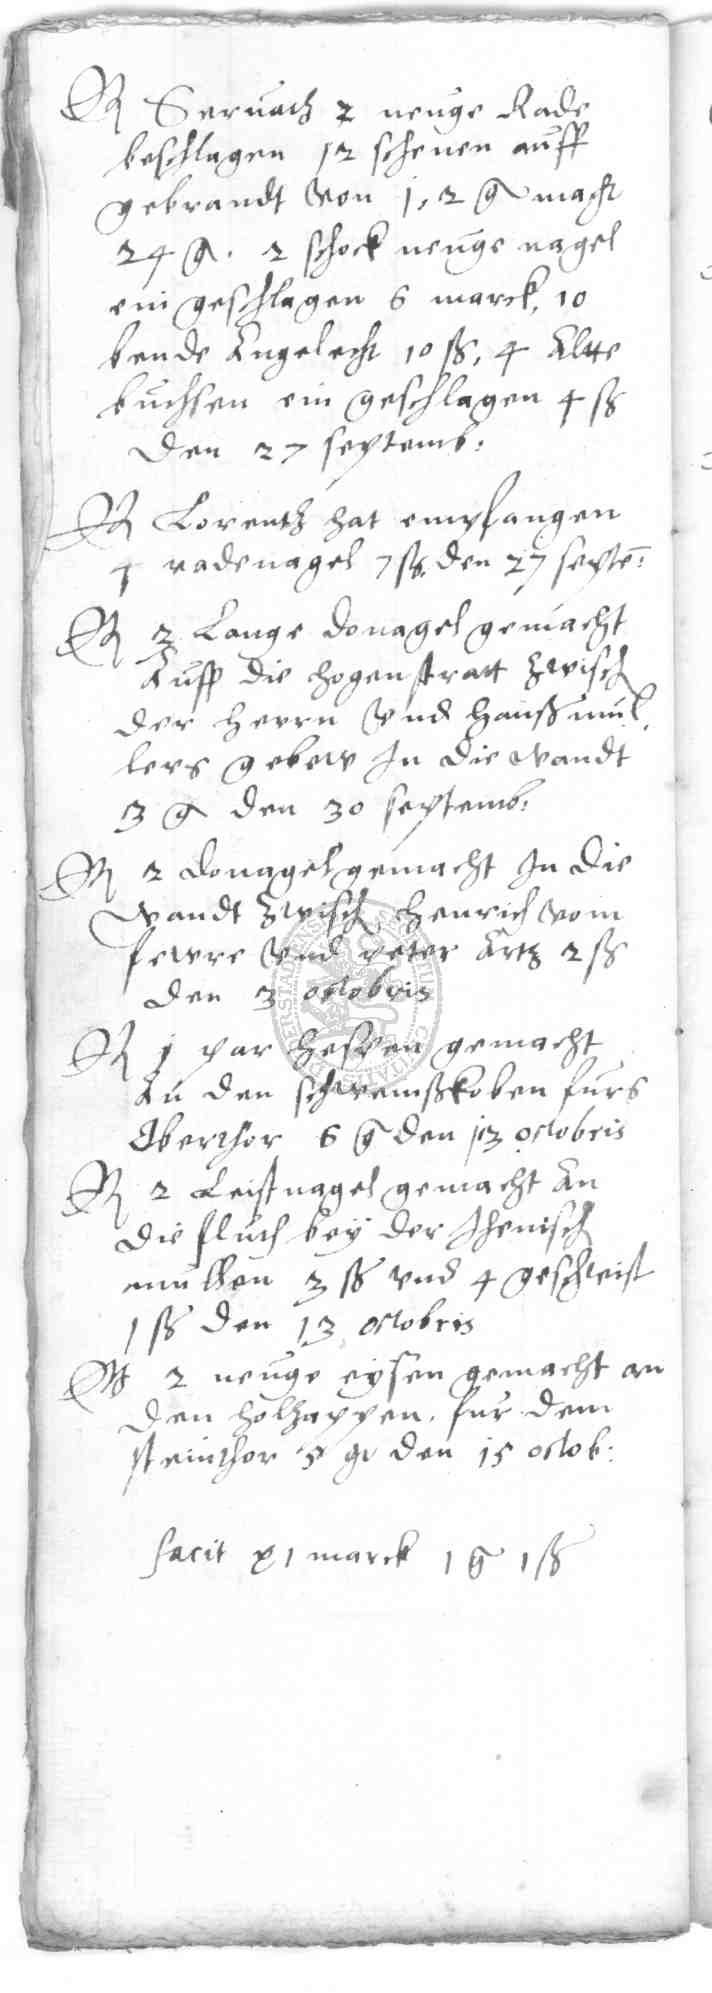 R Seruatz 2 neuge Rade
beschlagen 12 schenen auff
gebrandt von j, 2 g macht
24 g. 2 schock neuge nagel
ein geschlagen 6 marck, 10
bende Angelecht 10 ß, 4 Altte
buchsen ein geschlagen 4 ß
den 27 septemb:
R Lorentz hat empfangen
4 radenagel 7 ß. den 27 septe:
R 2 Lange donagel gemacht
Auff die hogenstratt zwisch
der herrn vnd haußmul
lers gebew In die wandt
3 g den 30 septemb:
R 2 donagel gemacht In die
wandt zwisch henrich vom
fewre vnd peter Artz 2 ß
den 3 octobris
R j par hespen gemacht
An den schweinßkoben furs
Oberthor 6 g den 13 octobris
R 2 Leistnagel gemacht An
die fluch bey der Jhenisch
mullen 3 ß vnd 4 gescherst
1 ß den 13 octobris
R 2 neuge eysen gemacht an
den holzappen. fur dem
steinthor 5 gr den 15 octob:
facit x1 marck 1 g 1 ß